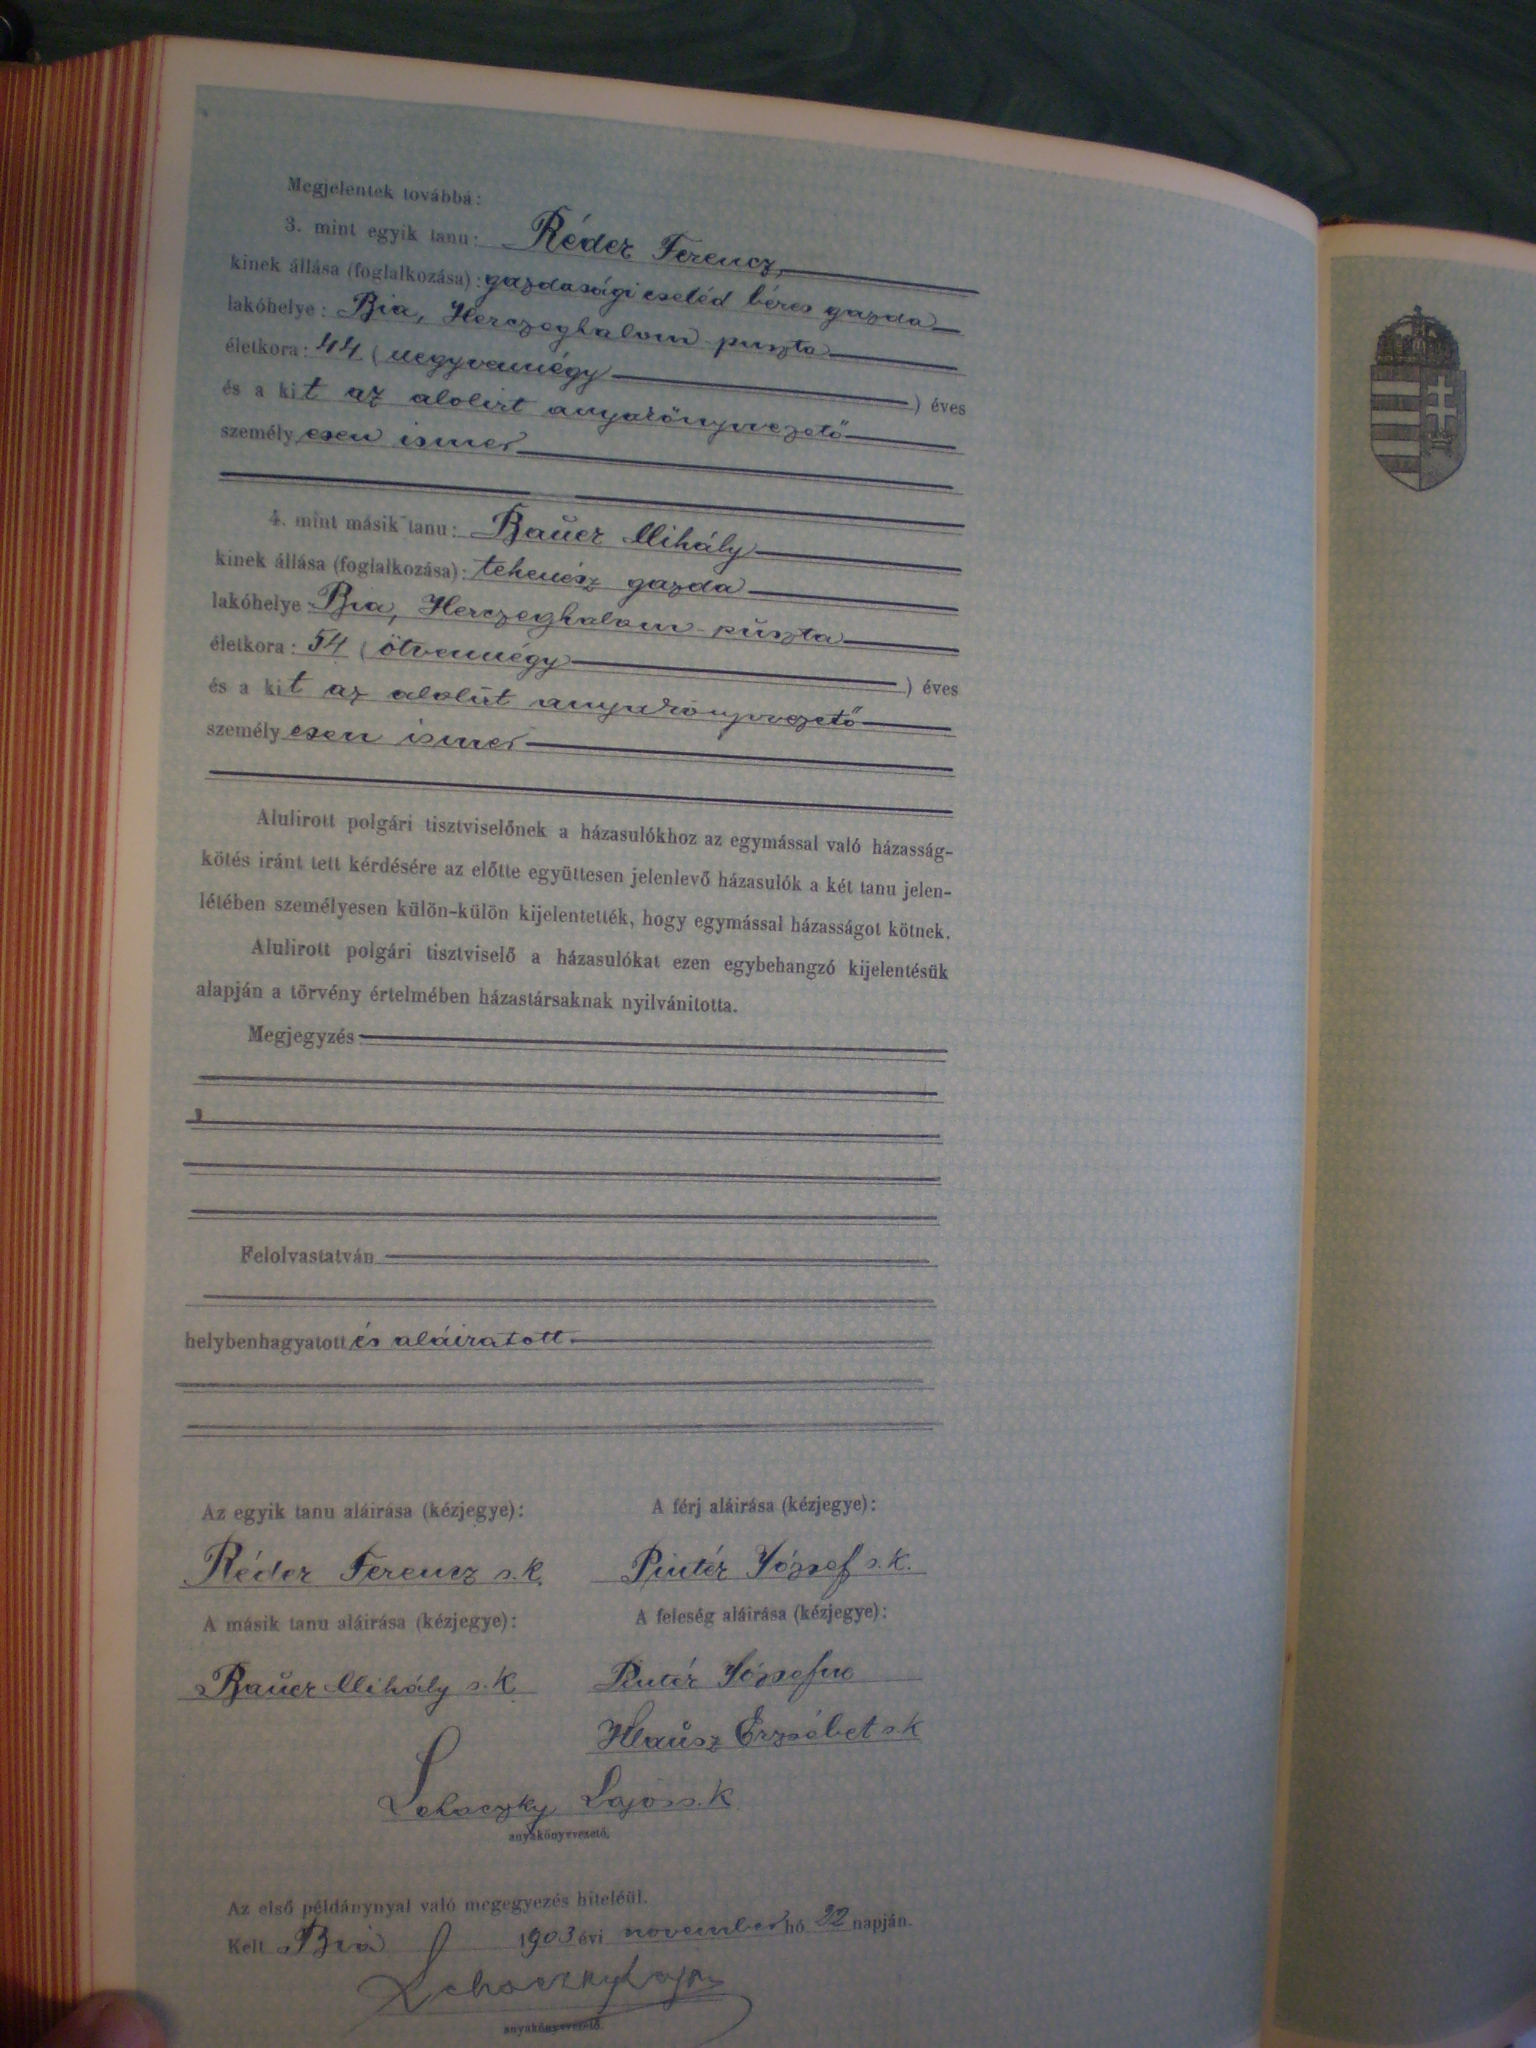 Megjelentek továbbá:
3. mint egyik tanu: Réder Ferencz,
kinek állása (foglalkozása): gazdasági cseléd béres gazda
lakóhelye: Bia, Herczeghalom-puszta
életkora: 44 (negyvennégy ) éves
és a kit az alolirt anyakönyvvezető
személyesen ismer
4. mint másik tanu: Bauer Mihály
kinek állása (foglalkozása): tehenész gazda
lakóhelye: Bia, Herczeghalom-puszta
életkora: 54 (ötvennégy ) éves
és a kit az alolirt anyakönyvvezető
személyesen ismer
Alulirott polgári tisztviselőnek a házasulókhoz az egymással való házasság-
kötés iránt tett kérdésére az előtte együttesen jelenlevő házasulók a két tanu jelen-
létében személyesen külön-külön kijelentették, hogy egymással házasságot kötnek.
Alulirott polgári tisztviselő a házasulókat ezen egybehangzó kijelentésük
alapján a törvény értelmében házastársaknak nyilvánitotta.
Megjegyzés
Felolvastatván
helybenhagyatott és aláiratott.
Az egyik tanu aláirása (kézjegye): A férj aláirása (kézjegye):
Réder Ferencz s.k. Pintér József s.k.
A másik tanu aláirása (kézjegye): A feleség aláirása (kézjegye):
Bauer Mihály s.k. Pintér Józsefné
Erzsébet s.k
Lajos s.k
anyakönyvvezető.
Az első példánynyal való megegyezés hiteléül.
Kelt Bia 1903 évi november hó 22 napján.
anyakönyvvezető.